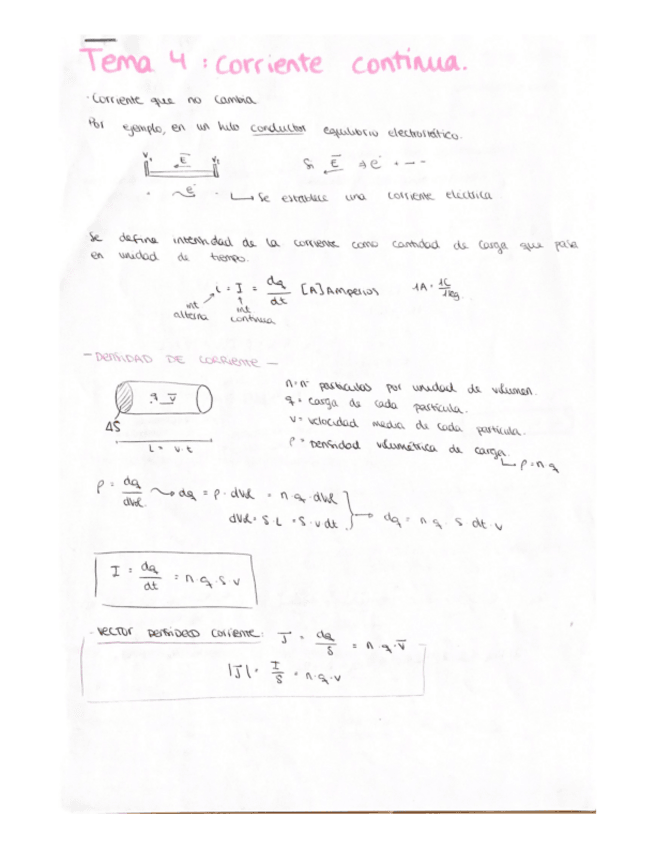 Tema 4 : corriente continua.
· Corriente que no cambia
Por ejemplo, en un hilo conductor equilibrio electrostático.
V₁ E V₂ Si E ⇒ e⁻
e⁻ ↳ Se establece una corriente eléctrica
Se define intensidad de la corriente como cantidad de carga que pasa
en unidad de tiempo.
i = I = dq/dt [A] Amperios 1A = 1C/1seg.
int alterna int continua
- DENSIDAD DE CORRIENTE -
n = nº partículas por unidad de volumen.
q v q = carga de cada partícula.
ΔS v = velocidad media de cada partícula.
L = v · t ρ = Densidad volumétrica de carga.
↳ ρ = n · q
ρ = dq/dVol. → dq = ρ · dVol = n · q · dVol
dVol = S · L = S · v dt → dq = n q · S dt · v
I = dq/dt = n · q · S · v
- VECTOR DENSIDAD CORRIENTE: J = dq/S = n · q · v
|J| = I/S = n · q · v